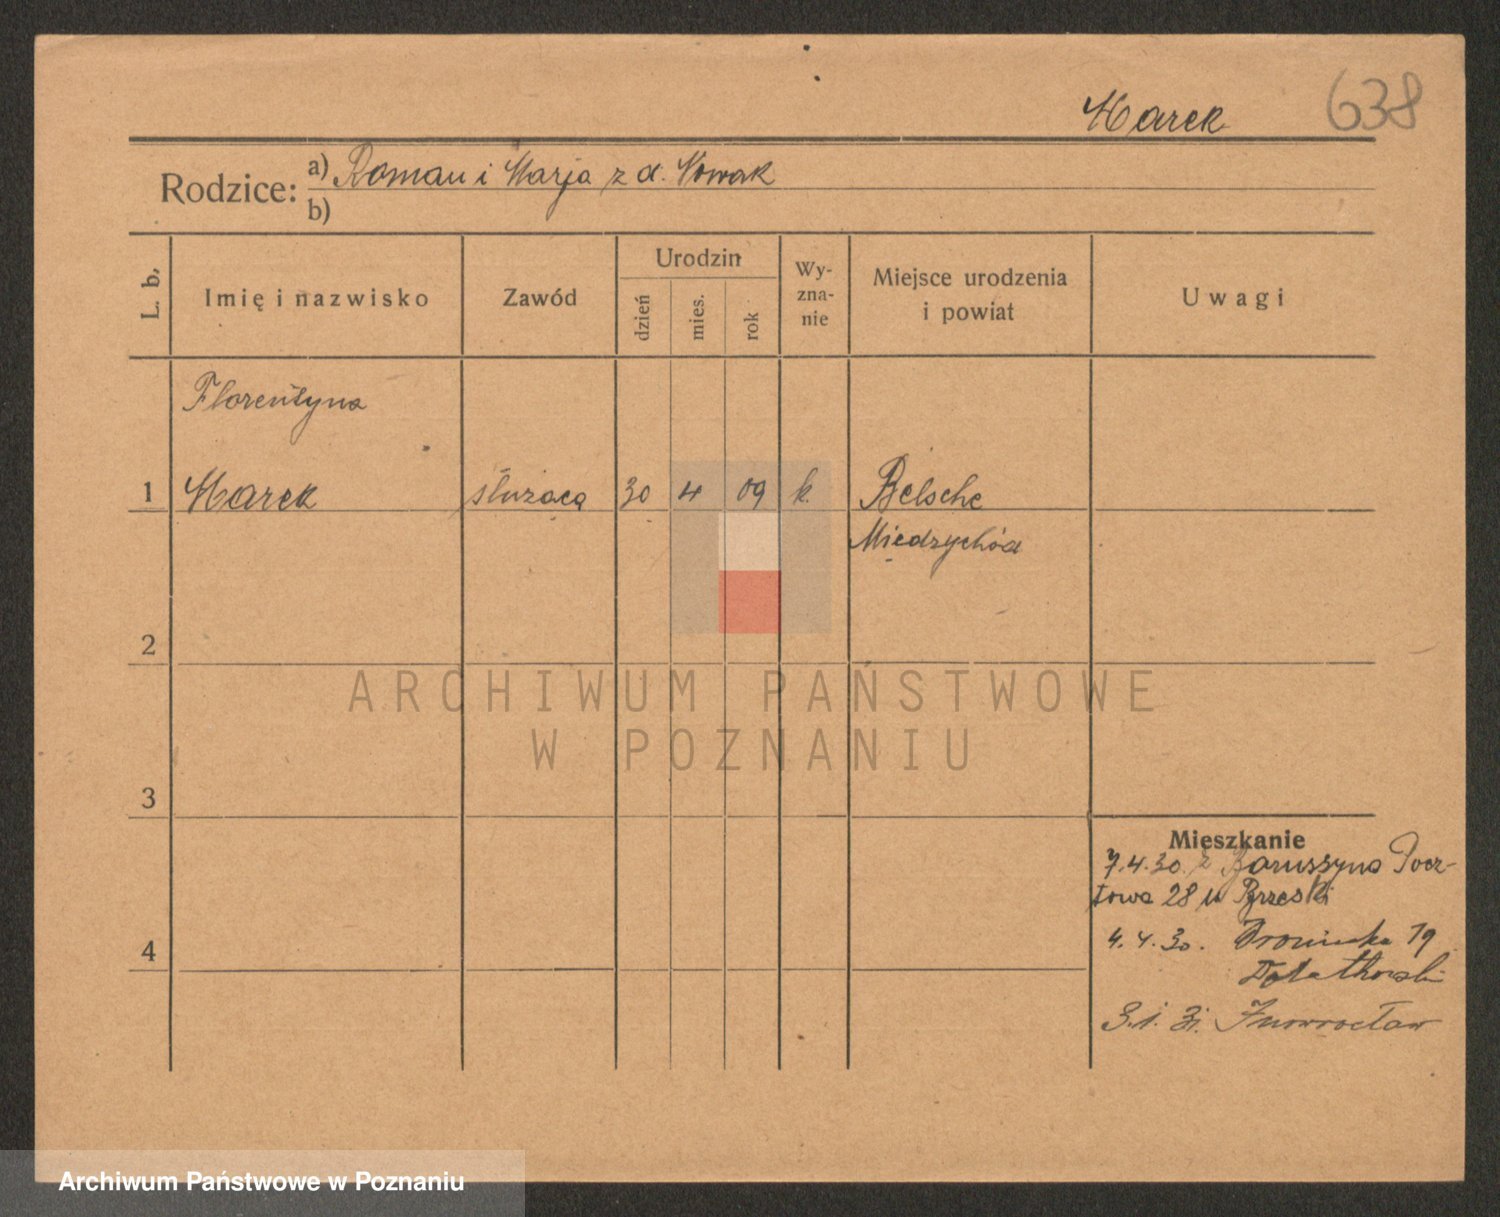 Marek
638
Rodzice: a) Roman i Marja z d. Nowak
b)
L. b.
Imię i nazwisko
Zawód
Urodzin
dzień
mies.
rok
Wy-
zna-
nie
Miejsce urodzenia
i powiat
Uwagi
Florentyna
1 Marek służąca 30 4 09 k. Belsche
Miedzychód
2
ARCHIWUM PAŃSTWOWE
W POZNANIU
3
Mieszkanie
7.4.30. z Boruszyna Pocz-
towa 28 u Brzeski
4
4.4.30. 19
3.1.31. Inowrocław
Archiwum Państwowe w Poznaniu